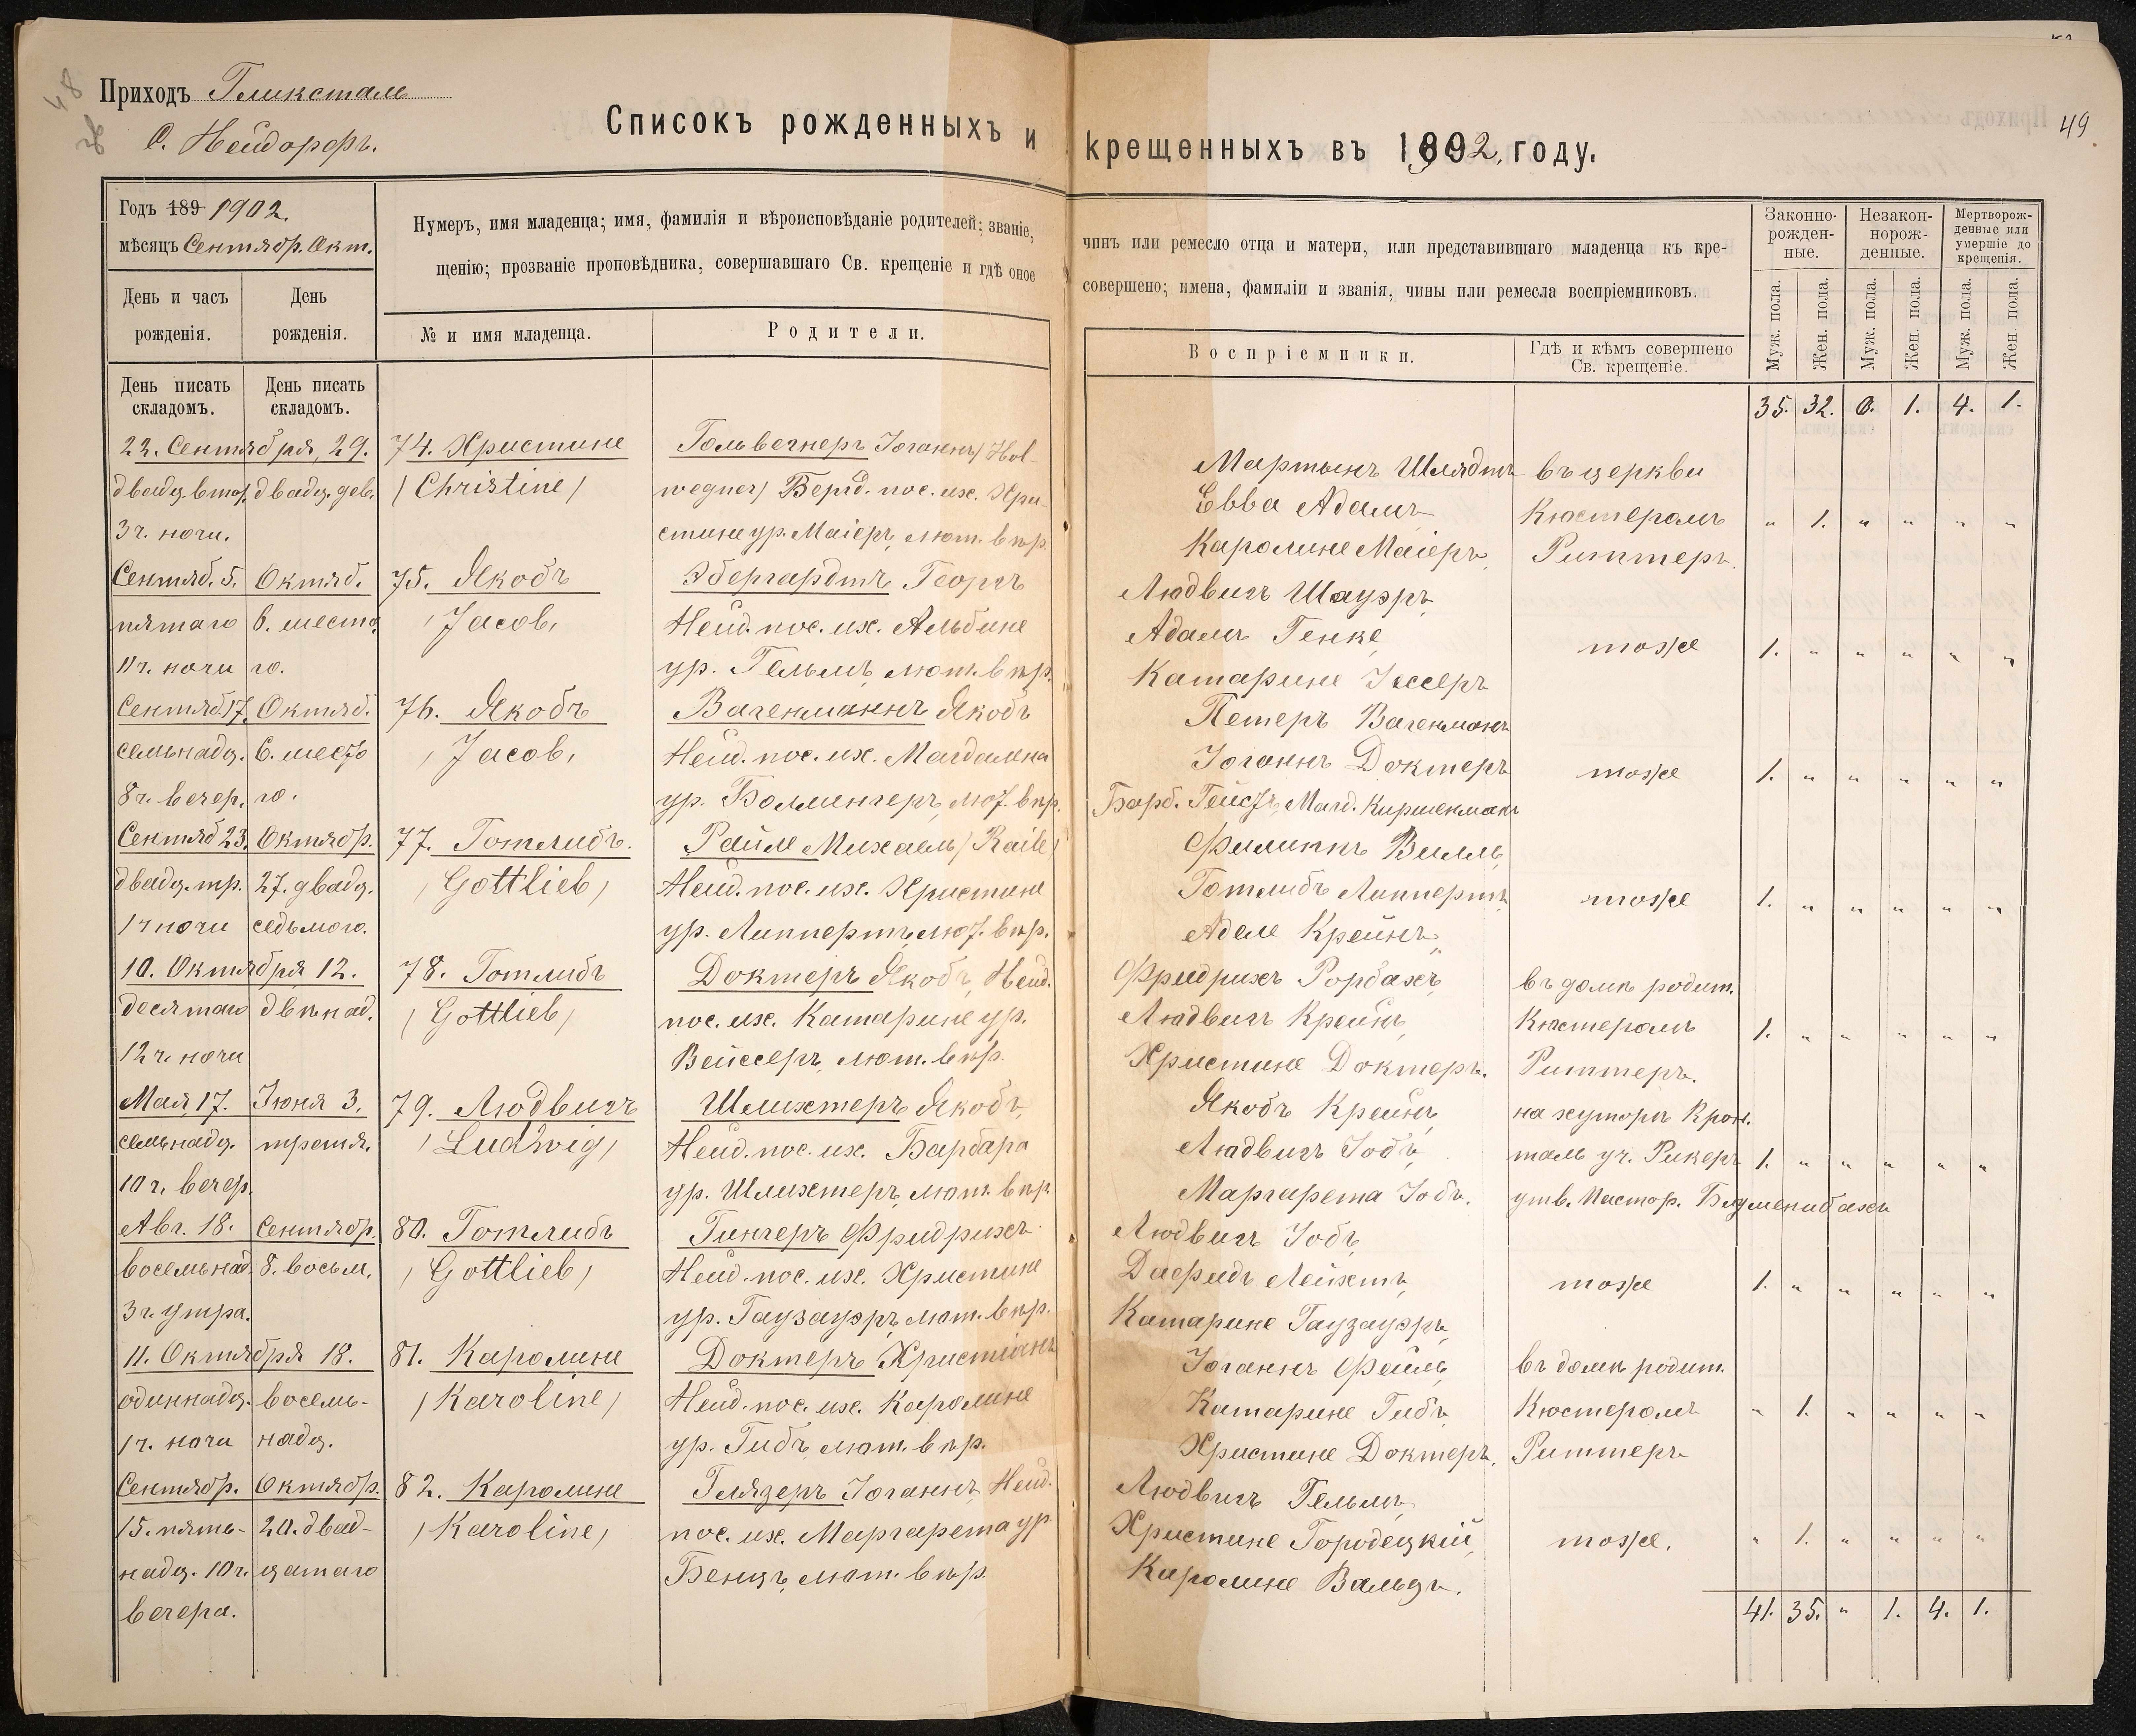 48
Приходъ Гликсталь
С. Нейдорфъ.
Списокъ рожденныхъ и крещенныхъ въ 1902, году.
49
Годъ 189 1902.
мѣсяцъ Сентябр. Окт.
Нумеръ, имя младенца; имя, фамилія и вѣроисповѣданіе родителей; званіе,
чинъ или ремесло отца и матери, или представившаго младенца къ кре-
щенію; прозваніе проповѣдника, совершавшаго Св. крещеніе и гдѣ оное
совершено; имена, фамиліи и званія, чины или ремесла воспріемниковъ.
Законно-рожден-ные.
Незакон-норож-денные.
Мертворож-денные или умершіе до крещенія.
День и часъ рожденія.
День рожденія.
№ и имя младенца.
Родители.
Воспріемники.
Гдѣ и кѣмъ совершено Св. крещеніе.
Муж. пола. Жен. пола. Муж. пола. Жен. пола. Муж. пола. Жен. пола.
День писать складомъ.
День писать складомъ.
35. 32. 0. 1. 4. 1.
22. Сентября, 29. 74. Христине Гольвегнеръ Іоганнъ/Hol-
Мартынъ Шлядтъ въ церкви
двадц. втор. двадц. дев. /Christine/ wegner/ Берд. пос. их. Хри-
Евва Адамъ Кюстеромъ " 1. " " " "
3 ч. ночи. стине ур. Маіеръ, лют. вѣр.
Каролине Маіеръ, Риттеръ.
Сентяб. 5. Октяб. 75. Якобъ Эбергардтъ Георгъ
Людвигъ Шауэръ,
пятаго 6. шесто /Jacob/ Нейд. пос. их. Альбине
Адамъ Генке, тоже 1. " " " " "
11 ч. ночи го. ур. Гельмъ, лют. вѣр.
Катарине Іссеръ
Сентяб. 17. Октяб. 76. Якобъ Вагенманнъ Якобъ
Петеръ Вагенманъ
семьнадц. 6. шесто /Jacob/ Нейд. пос. их. Магдалена
Іоганнъ Доктеръ тоже 1. " " " " "
8 ч. вечер. го. ур. Болленгеръ, лют. вѣр.
Барб. Гейстъ, Магд. Киршенманъ
Сентяб 23. Октябр. 77. Готлибъ. Райле Михаель/Raile/
Филиппъ Вилль,
двадц. тр. 27. двадц. /Gottlieb/ Нейд. пос. их. Христине
Готлибъ Липпертъ, тоже 1. " " " " "
1 ч ночи седьмого. ур. Липпертъ, лют. вѣр.
Аделе Крейнъ,
10. Октября 12. 78. Готлибъ Доктеръ Якобъ, Нейд.
Фридрихъ Рорбахъ, въ домѣ родит.
десятаго двѣнад. /Gottlieb/ пос. их. Катарине ур.
Людвигъ Крейнъ, Кюстеромъ 1. " " " " "
12 ч. ночи Вейссеръ, лют. вѣр.
Христине Доктеръ. Риттеръ.
Мая 17. Іюня 3. 79. Людвигъ Шлихтеръ Якобъ,
Якобъ Крейнъ, на хуторѣ Крон.
семьнадц. третья. /Ludwig/ Нейд. пос. их. Барбара
Людвигъ Іобъ, таль уч. Рикеръ 1. " " " " "
10 ч. вечер. ур. Шлихтеръ, лют. вѣр.
Маргарета Іобъ. утв. Пастор. Блуменибахъ
Авг. 18. Сентябр. 80. Готлибъ Гингеръ Фридрихъ
Людвигъ Іобъ,
восемьнад. 8. восьм. /Gottlieb/ Нейд. пос. их. Христине
Дафидъ Лейхтъ, тоже 1. " " " " "
3 ч. утра. ур. Гаузауэръ, лют. вѣр.
Катарине Гаузауэръ,
11. Октября 18. 81. Каролине Доктеръ Христіанъ
Іоганнъ Фейль, въ домѣ родит.
одиннадц. восемь- /Karoline/ Нейд. пос. их. Каролине
Катарине Гибъ, Кюстеромъ " 1. " " " "
1 ч. ночи надц. ур. Гибъ, лют. вѣр.
Христине Доктеръ, Риттеръ
Сентябр. Октябр. 82. Каролине Глязеръ Іоганнъ, Нейд.
Людвигъ Гельмъ,
15. пять- 20. двад- /Karoline/ пос. их. Маргарета ур
Христине Городецкій, тоже. " 1. " " " "
надц. 10 ч. цатаго Бенцъ, лют. вѣр.
Каролине Вальдъ.
вечера.
41. 35. " 1. 4. 1.